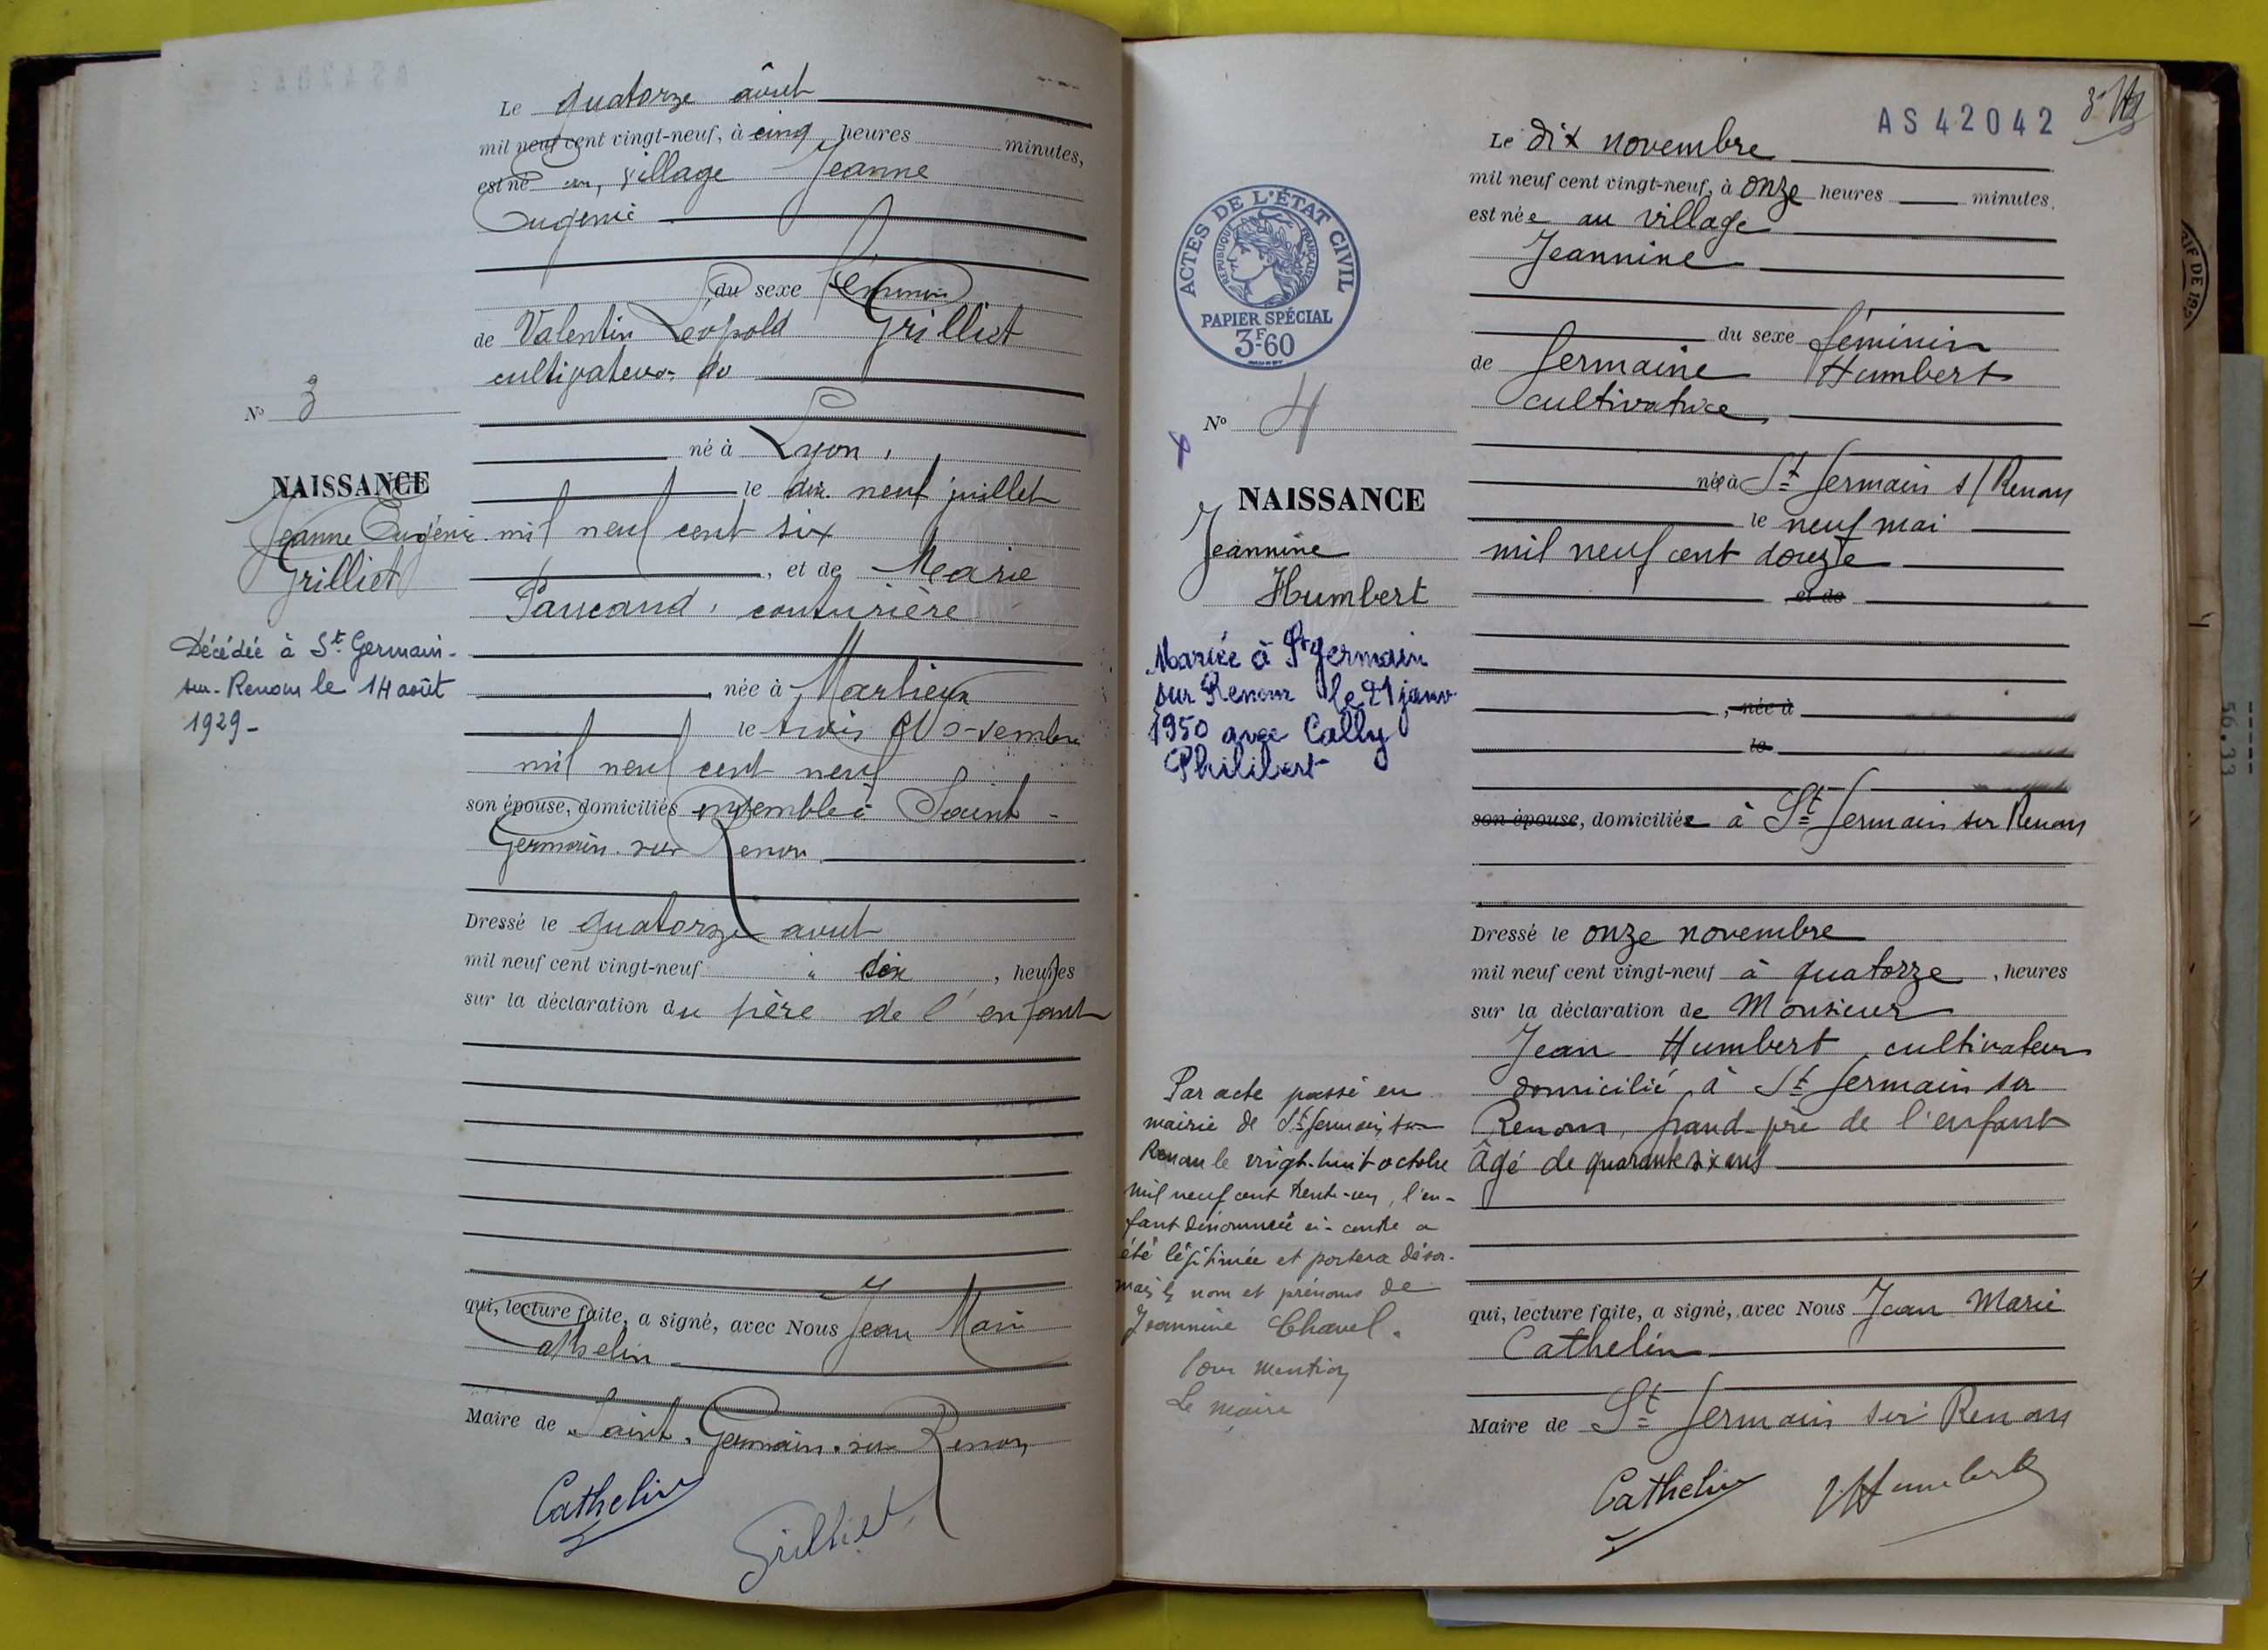 Le quatorze âout
mil neuf cent vingt-neuf, à cinq heures minutes,
est né au, village Jeanne
Eugénie
du sexe féminin
de Valentin Léopold Grilliet
cultivateur
né à Lyon,
le dix neuf juillet
mil neuf cent six
, et de Marie
Paucand, couturière
, née à Marlieux
le trois Novembre
mil neuf cent neuf
son épouse, domiciliés ensemble à Saint-
Germain-sur Renon
Dressé le quatorze aout
mil neuf cent vingt-neuf à dix, heures
sur la déclaration du père de l'enfant
qui, lecture faite, a signé, avec Nous Jean Marie
Cathelin
Maire de Saint-Germain-sur Renon
Cathelin
Grilliet
No 3
NAISSANCE
Jeanne Eugénie
Grilliet
Décédée à St Germain-
sur-Renon le 14 août
1929-
AS42042
ACTES DE L'ÉTAT CIVIL
RÉPUBLIQUE FRANÇAISE
PAPIER SPÉCIAL
3F60
No 4
NAISSANCE
Jeannine
Humbert
Mariée à St Germain
sur Renon le 21 janv
1950 avec Cally
Philibert
Par acte passé en
mairie de St Germain sur
Renon le vingt-huit octobre
mil neuf cent trente-un, l'en-
fant dénommée ci-contre a
été légitimée et portera désor-
mais les nom et prénoms de
Jeannine Chavel.
Pour mention
Le maire
Le dix novembre
mil neuf cent vingt-neuf, à onze heures minutes.
est née au village
Jeannine
du sexe féminin
de Germaine Humbert
cultivatrice,
née à St Germain s/Renon
le neuf mai
mil neuf cent douze
et de
, née à
le
son épouse, domiciliée à St Germain sur Renon
Dressé le onze novembre
mil neuf cent vingt-neuf à quatorze, heures
sur la déclaration de Monsieur
Jean Humbert, cultivateur
domicilié à St Germain sur
Renon, grand-père de l'enfant
âgé de quarante six ans
qui, lecture faite, a signé, avec Nous Jean Marie
Cathelin
Maire de St Germain sur Renon
Cathelin
J Humbert